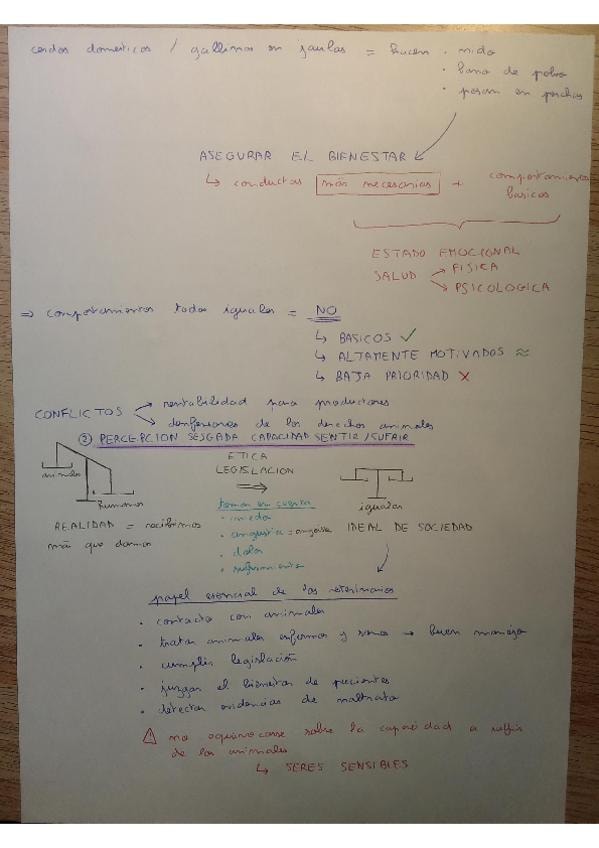 cerdos domesticos / gallinas en jaulas = hacen · nido
· bano de polvo
· posan en perchas
ASEGURAR EL BIENESTAR
↳ conductas más necesarias + comportamientos basicos
ESTADO EMOCIONAL
SALUD → FISICA
→ PSICOLOGICA
⇒ comportamientos todos iguales = NO
↳ BASICOS ✓
↳ ALTAMENTE MOTIVADOS ≈
↳ BAJA PRIORIDAD X
CONFLICTOS → rentabilidad para productores
→ denfensores de los derechos animales
② PERCEPCION SESGADA CAPACIDAD SENTIR/SUFRIR
animales
humanos
ETICA
LEGISLACION
⇒
toman en cuenta
· miedo
· angustia =
· dolor
· sufrimiento
iguales
REALIDAD = recibimos
más que damos
IDEAL DE SOCIEDAD
papel esencial de los veterinarios
· contacto con animales
· tratar animales enfermos y sanos → buen manejo
· cumplir legislación
· juzgar el bienestar de pacientes
· detectar evidencias de maltrato
⚠ no equivocarse sobre la capacidad a sufrir
de los animales
↳ SERES SENSIBLES